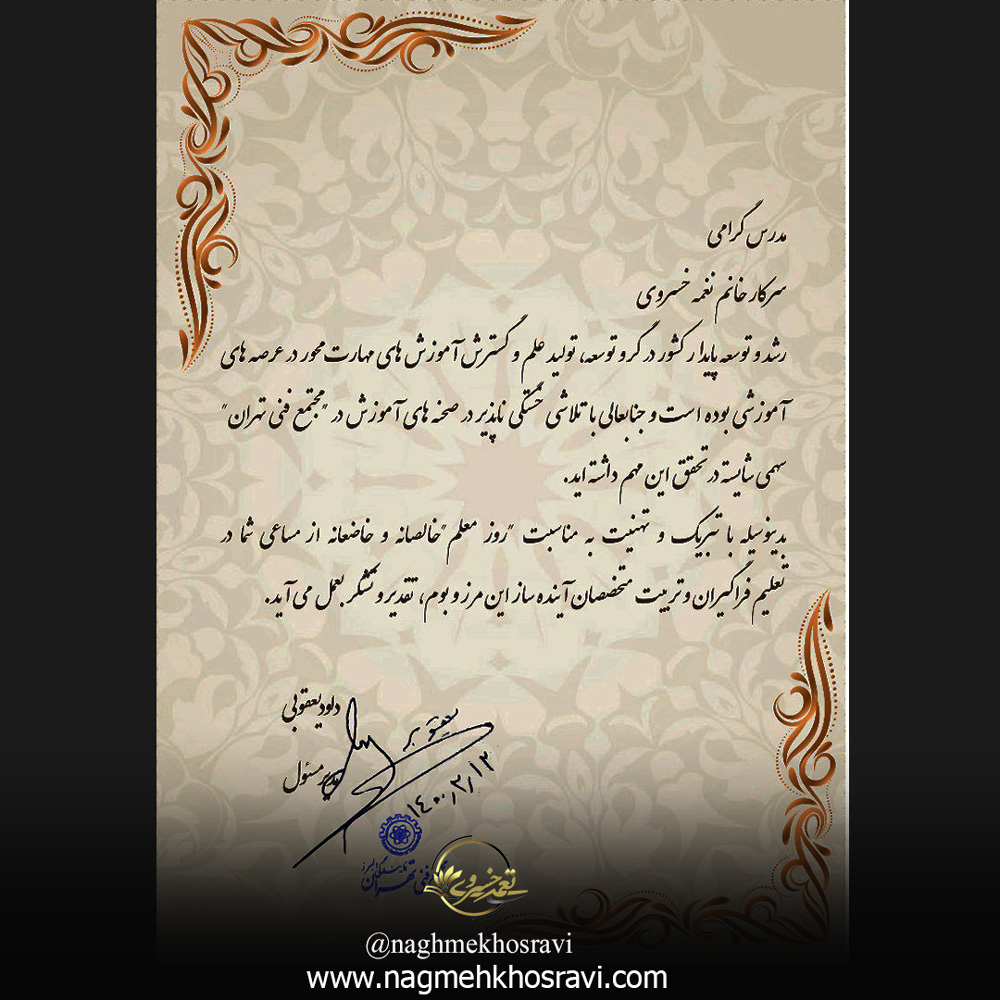 مدرس گرامی
سرکار خانم نغمه خسروی
رشد و توسعه پایدار کشور در گرو توسعه، تولید علم و گسترش آموزش های مهارت محور در عرصه های
آموزشی بوده است و جنابعالی با تلاشی خستگی ناپذیر در صحنه های آموزش در "مجتمع فنی تهران"
سهمی شایسته در تحقق این مهم داشته اید.
بدینوسیله با تبریک و تهنیت به مناسبت "روز معلم" خالصانه و خاضعانه از مساعی شما در
تعلیم فراگیران و تربیت متخصصان آینده ساز این مرز و بوم، تقدیر و تشکر بعمل می آید.
داود یعقوبی
مدیر مسئول
۱۴۰۰,۲,۱۲
فنی تهران
نغمه خسروی
@naghmekhosravi
www.nagmehkhosravi.com